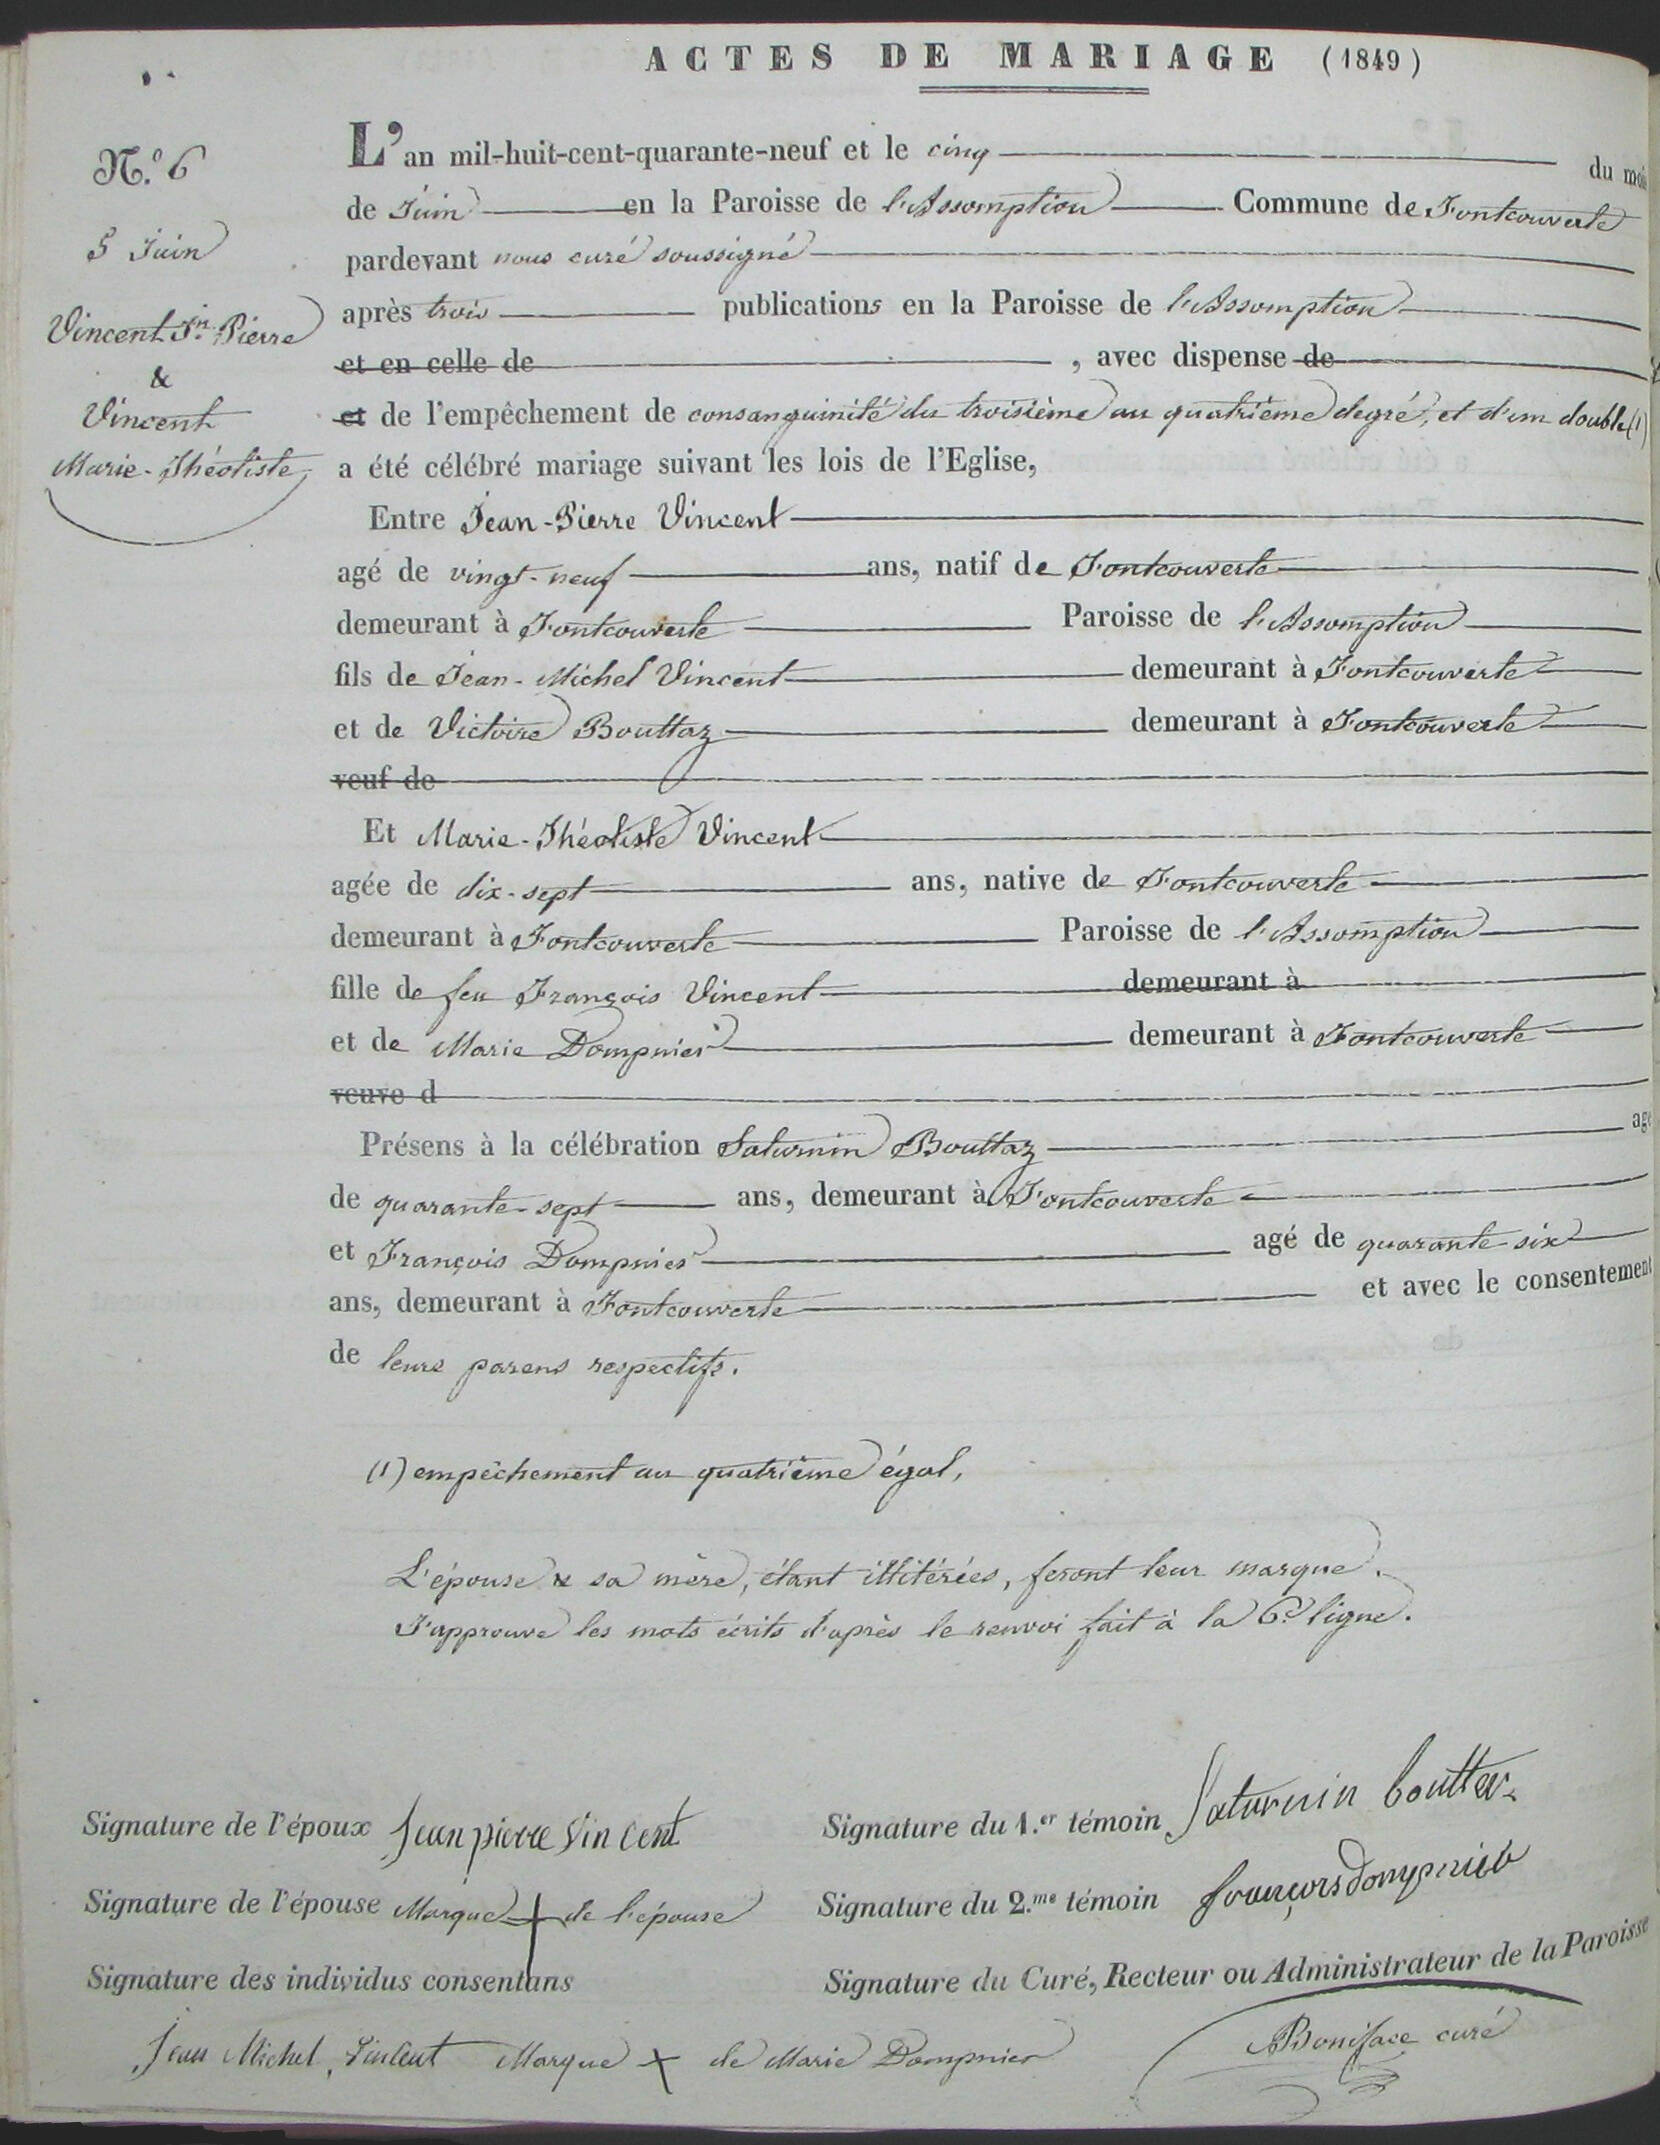 ACTES DE MARIAGE (1849)
N.º 6
5 Juin
Vincent Jn. Pierre
&
Vincent
Marie-Théotiste,
L'an mil-huit-cent-quarante-neuf et le cinq du mois
de Juin en la Paroisse de l'Assomption Commune de Fontcouverte
pardevant nous curé soussigné
après trois publications en la Paroisse de l'Assomption
et en celle de , avec dispense de
et de l'empêchement de consanguinité du troisième au quatrième degré, et d'un double (1)
a été célébré mariage suivant les lois de l'Eglise,
Entre Jean-Pierre Vincent
agé de vingt-neuf ans, natif de Fontcouverte
demeurant à Fontcouverte Paroisse de l'Assomption
fils de Jean-Michel Vincent demeurant à Fontcouverte
et de Victoire Bouttaz demeurant à Fontcouverte
veuf de
Et Marie-Théotiste Vincent
agée de dix-sept ans, native de Fontcouverte
demeurant à Fontcouverte Paroisse de l'Assomption
fille de feu François Vincent demeurant à
et de Marie Dompnier demeurant à Fontcouverte
veuve d
Présens à la célébration Saturnin Bouttaz agé
de quarante-sept ans, demeurant à Fontcouverte
et François Dompnier agé de quarante six
ans, demeurant à Fontcouverte et avec le consentement
de leurs parens respectifs.
(1) empêchement au quatrième égal,
L'épouse & sa mère, étant illitérées, feront leur marque.
J'approuve les mots écrits d'après le renvoi fait à la 6e ligne.
Signature de l'époux Jean pierre Vincent
Signature du 1.er témoin Saturnin bouttaz
Signature de l'épouse Marque + de l'épouse
Signature du 2.me témoin françois dompnier
Signature des individus consentans
Signature du Curé, Recteur ou Administrateur de la Paroisse
Jean Michel Vincent Marque + de Marie Dompnier
Boniface curé